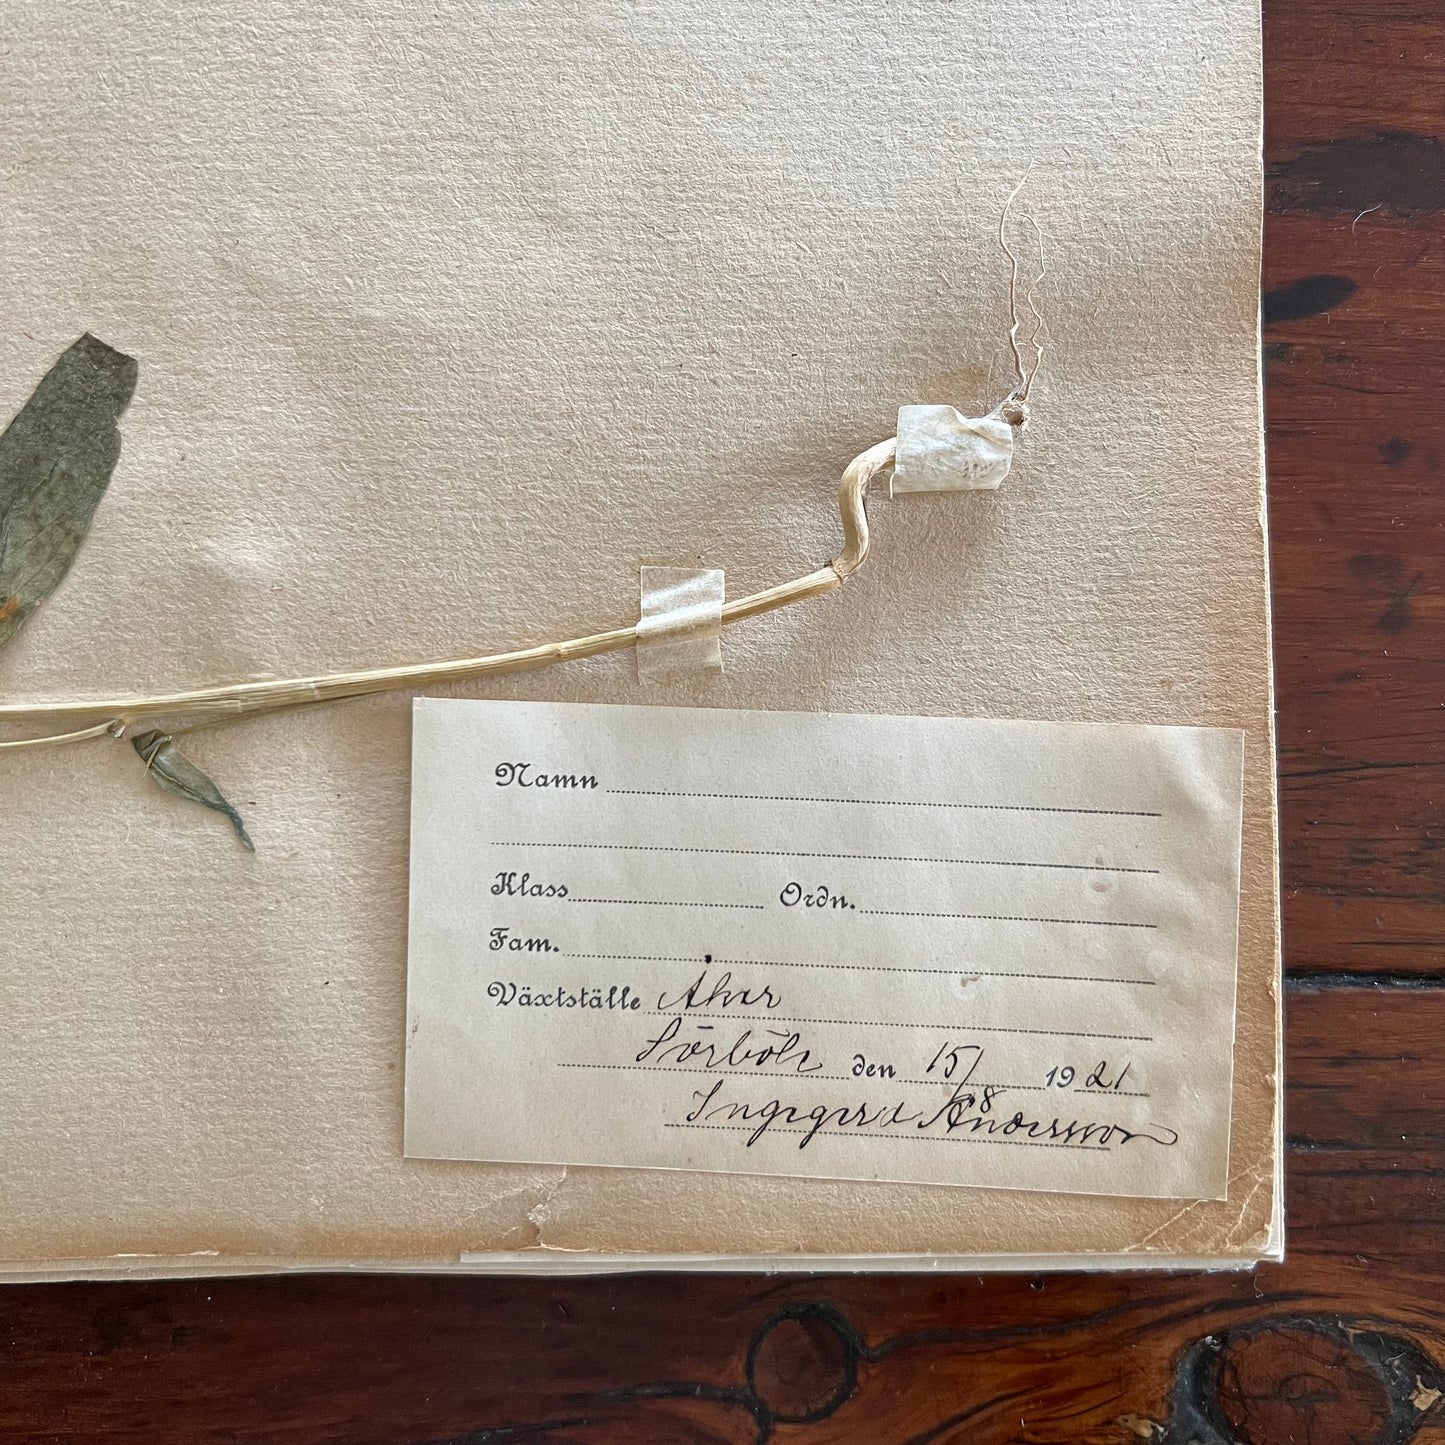 Namn
Klass Ordn.
Fam.
Växtställe Åker
Sörböle den 15/8 1921
Ingegerd Andersson